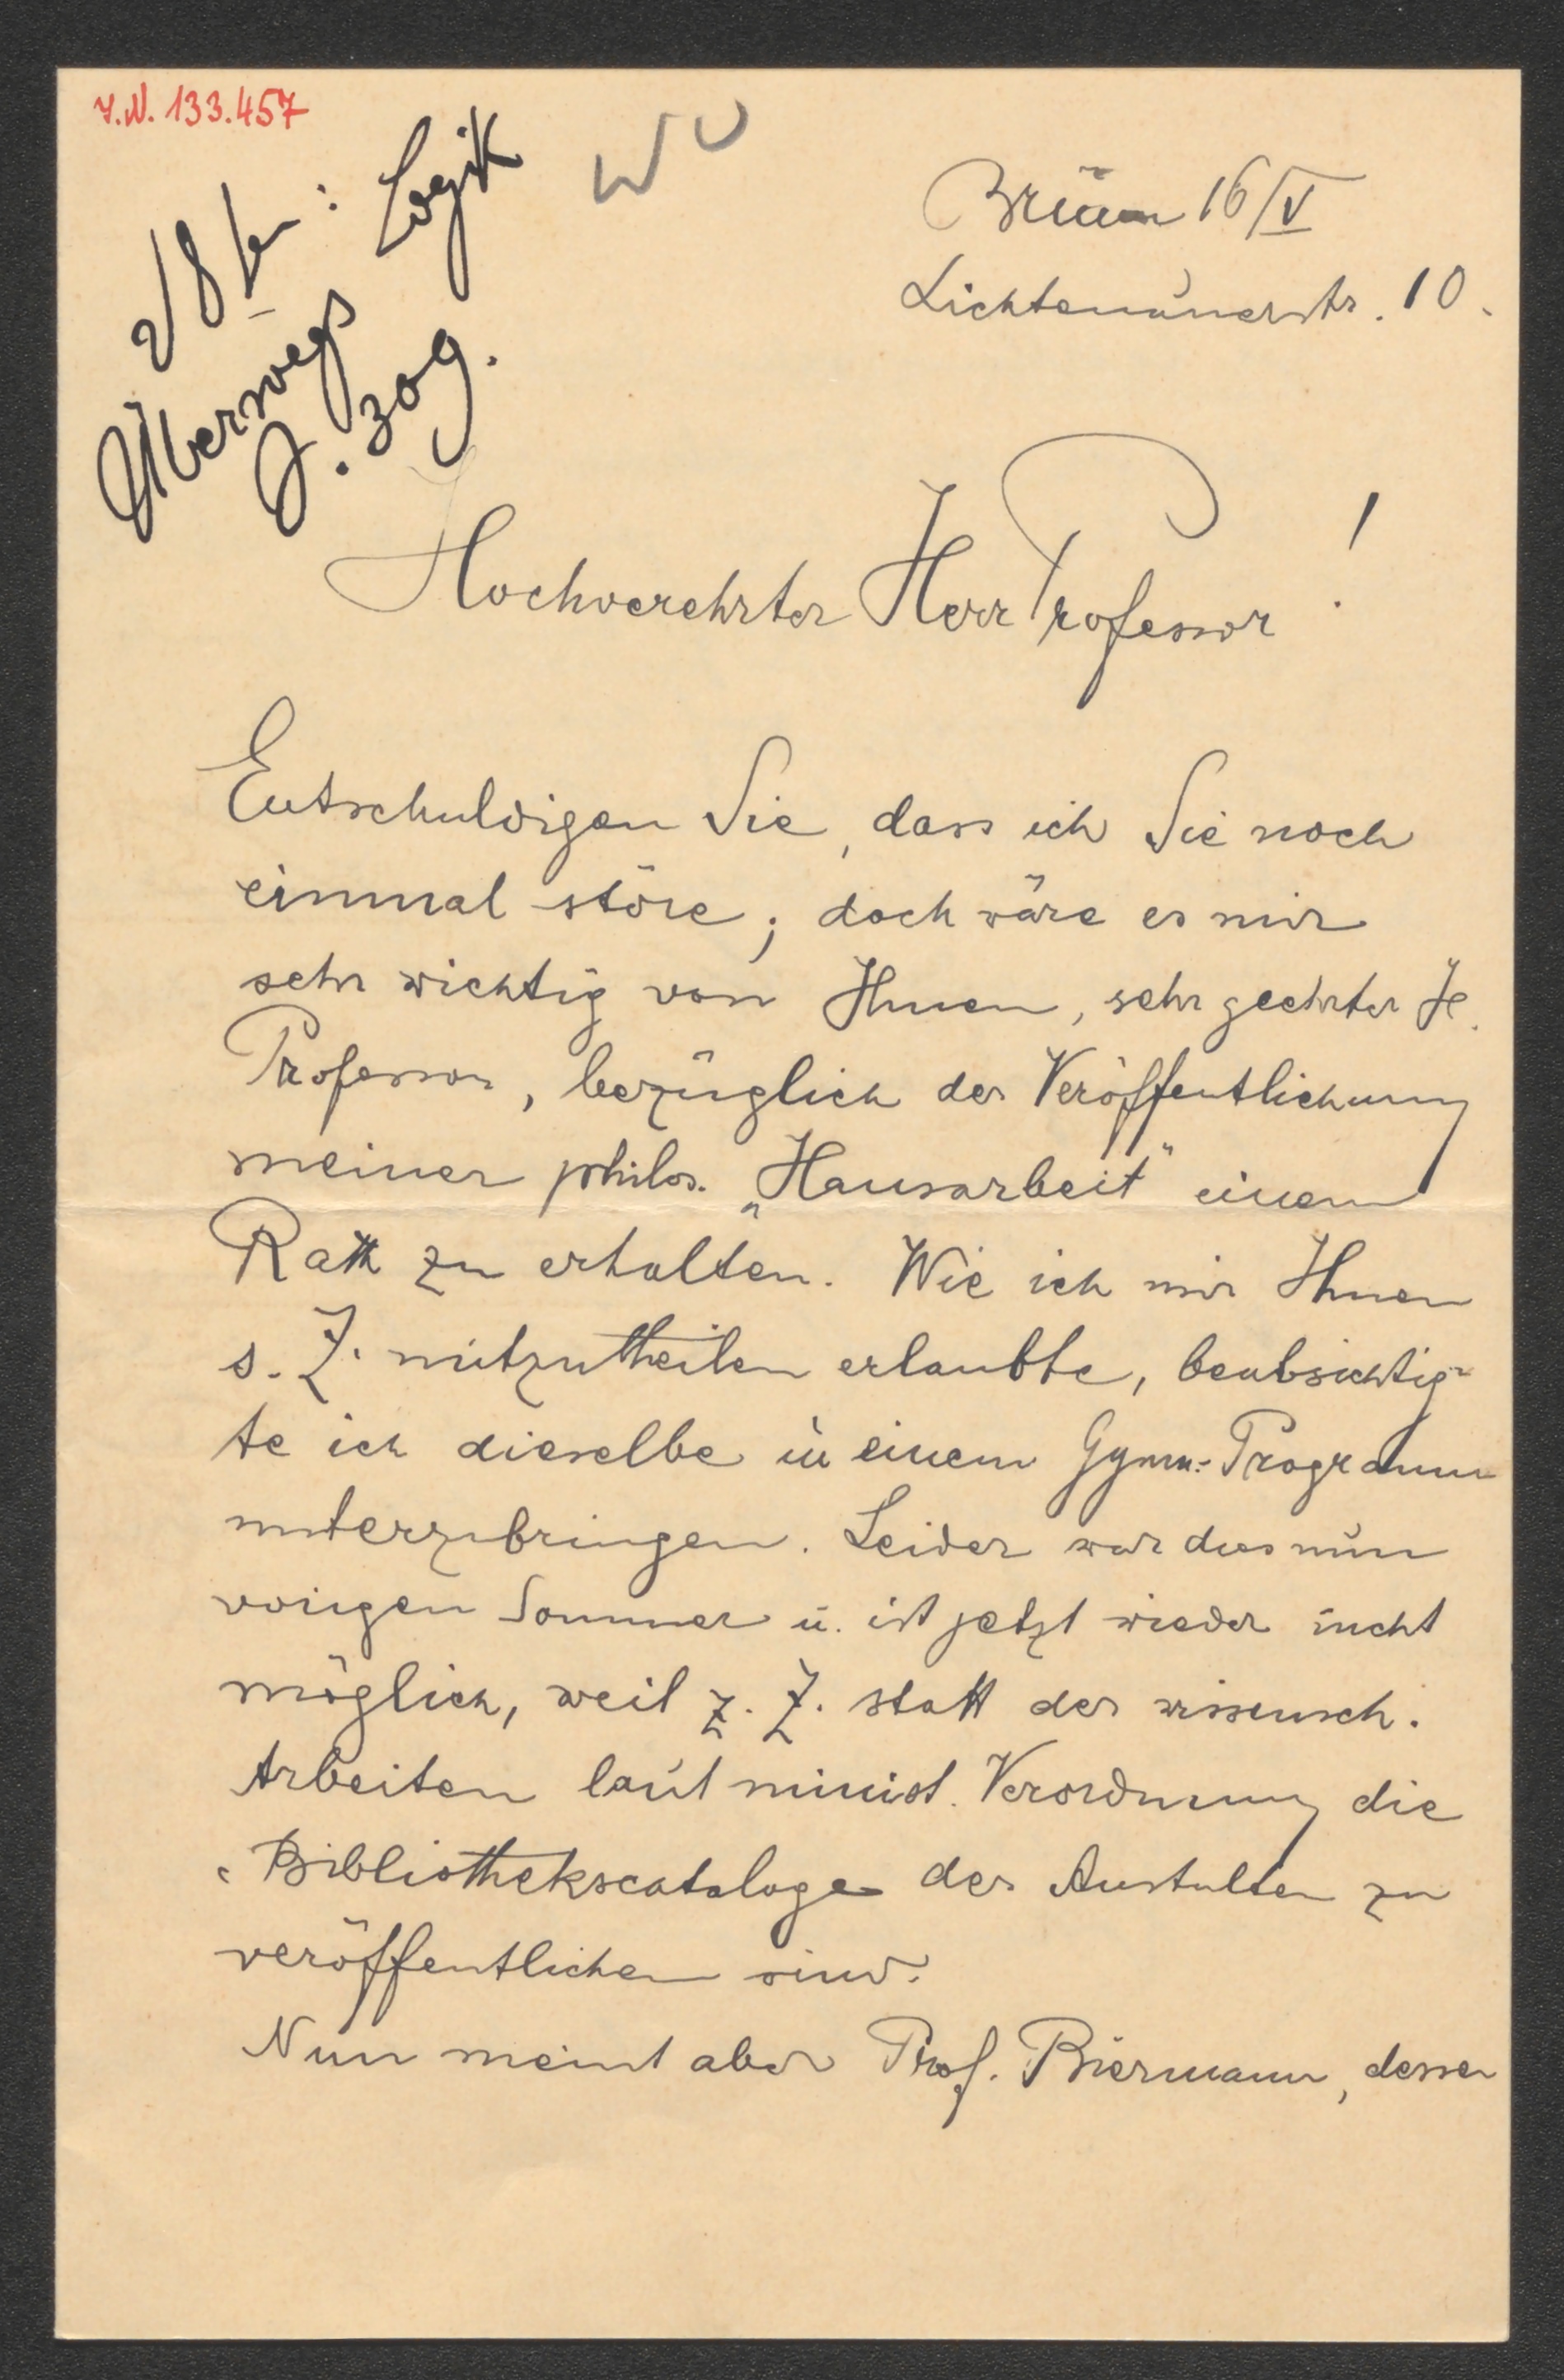 I.N. 133.457
Logik
Überwegs
Brünn 16/V
Lichtenauerstr. 10.
Hochverehrter Herr Professor!
Entschuldigen Sie, dass ich Sie noch
einmal störe; doch wäre es mir
sehr wichtig von Ihnen, sehr geehrter H.
Professor, bezüglich der Veröffentlichung
meiner philos. „Hausarbeit" einen
Rath zu erhalten. Wie ich mir Ihnen
s. Z. mitzutheilen erlaubte, beabsichtig-
te ich dieselbe in einem Gymn.-Programm
unterzubringen. Leider war dies nun
vorigen Sommer u. ist jetzt wieder nicht
möglich, weil z. Z. statt der wissensch.
Arbeiten laut minist. Verordnung die
Bibliothekscataloge der Anstalten zu
veröffentlichen sind.
Nun meint aber Prof. Biermann, dessen